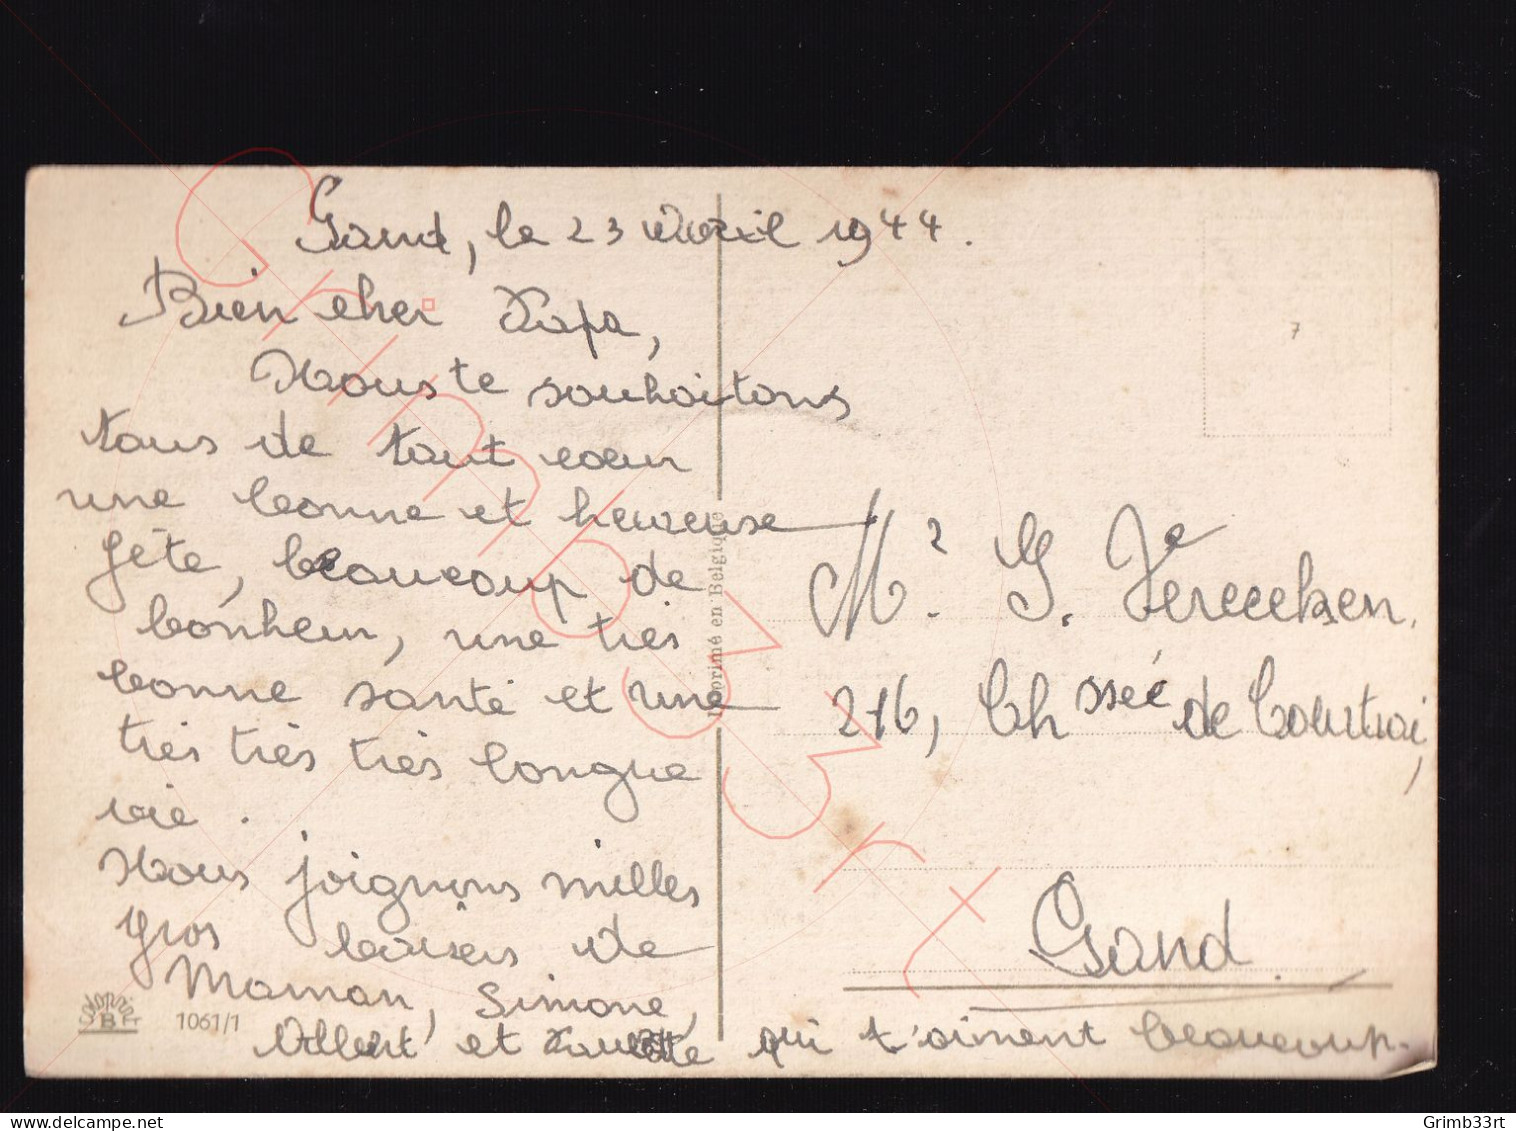 Gand, le 23 Avril 1944.
Bien cher Papa,
Nous te souhaitons
tous de tout coeur
une bonne et heureuse
fête, beaucoup de
bonheur, une très
bonne santé et une
très très très longue
vie.
Nous joignons milles
gros baisers de
Maman, Simone,
Albert et qui t'aiment beaucoup.
Mr. G. Vereecken,
216, Chssée de Courtrai,
Gand.
Imprimé en Belgique
1061/1
7
Grimb33rt
delcampe.net
Grimb33rt